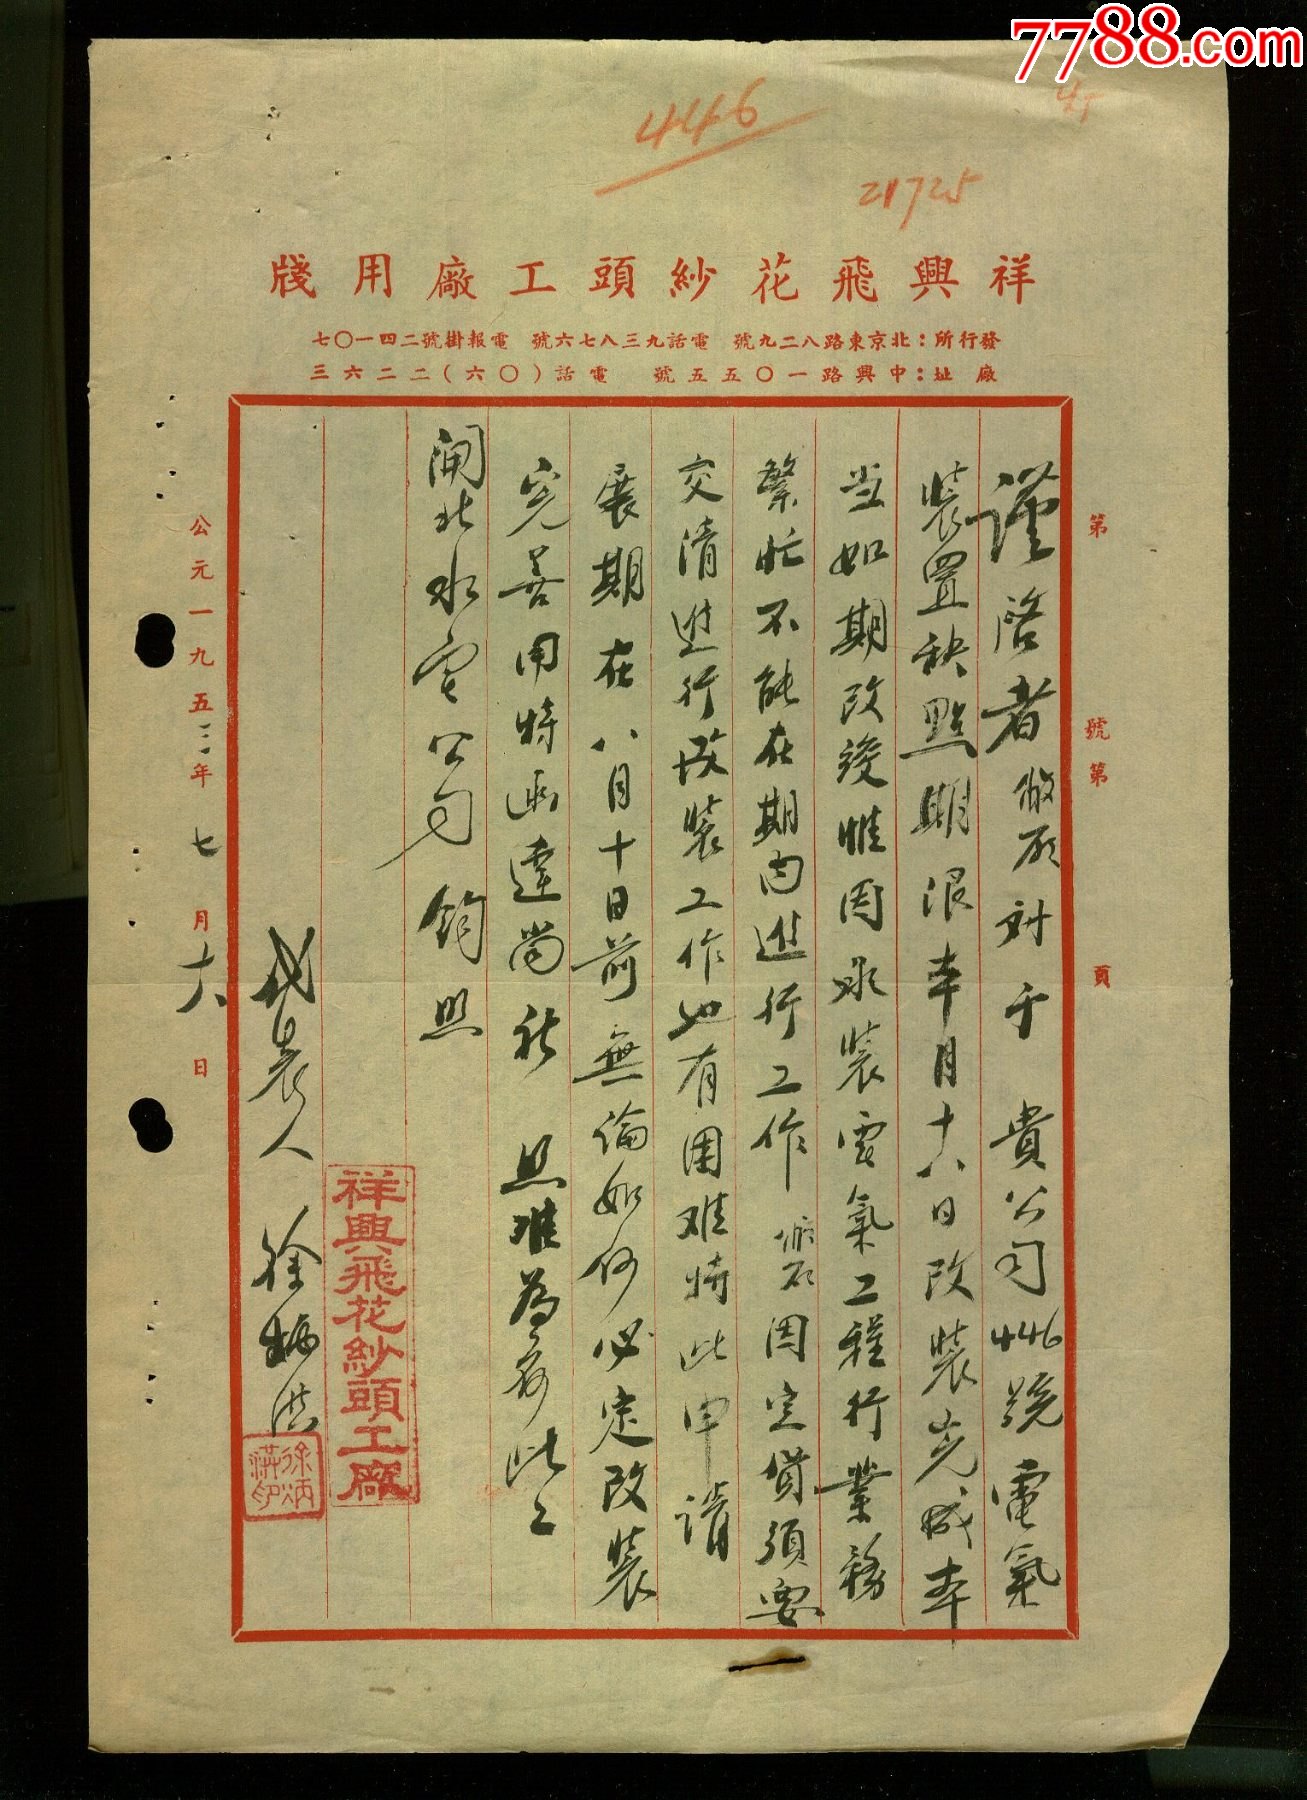 7788.com
446
21725
祥興飛花紗頭工廠用牋
發行所：北京東路八二九號 電話九三八七六號 電報掛號二四一〇七
廠址：中興路一〇五五號 電話（〇六）二二六三
第 號第 頁
謹啓者敝厰对于 貴公司446號電氣
裝置缺點期限本月十六日改裝完成本
当如期改竣惟因承裝電氣工程行業務
繁忙不能在期内進行工作 敝厰因定貨須要
交清進行改裝工作也有困难特此申請
展期 在八月十日前無論如何必定改裝
完善用特函達尚祈 照准為荷此上
閘北水電公司 鈞照
祥興飛花紗頭工廠
代表人 徐炳洪
徐炳洪印
公元一九五三年七月十六日